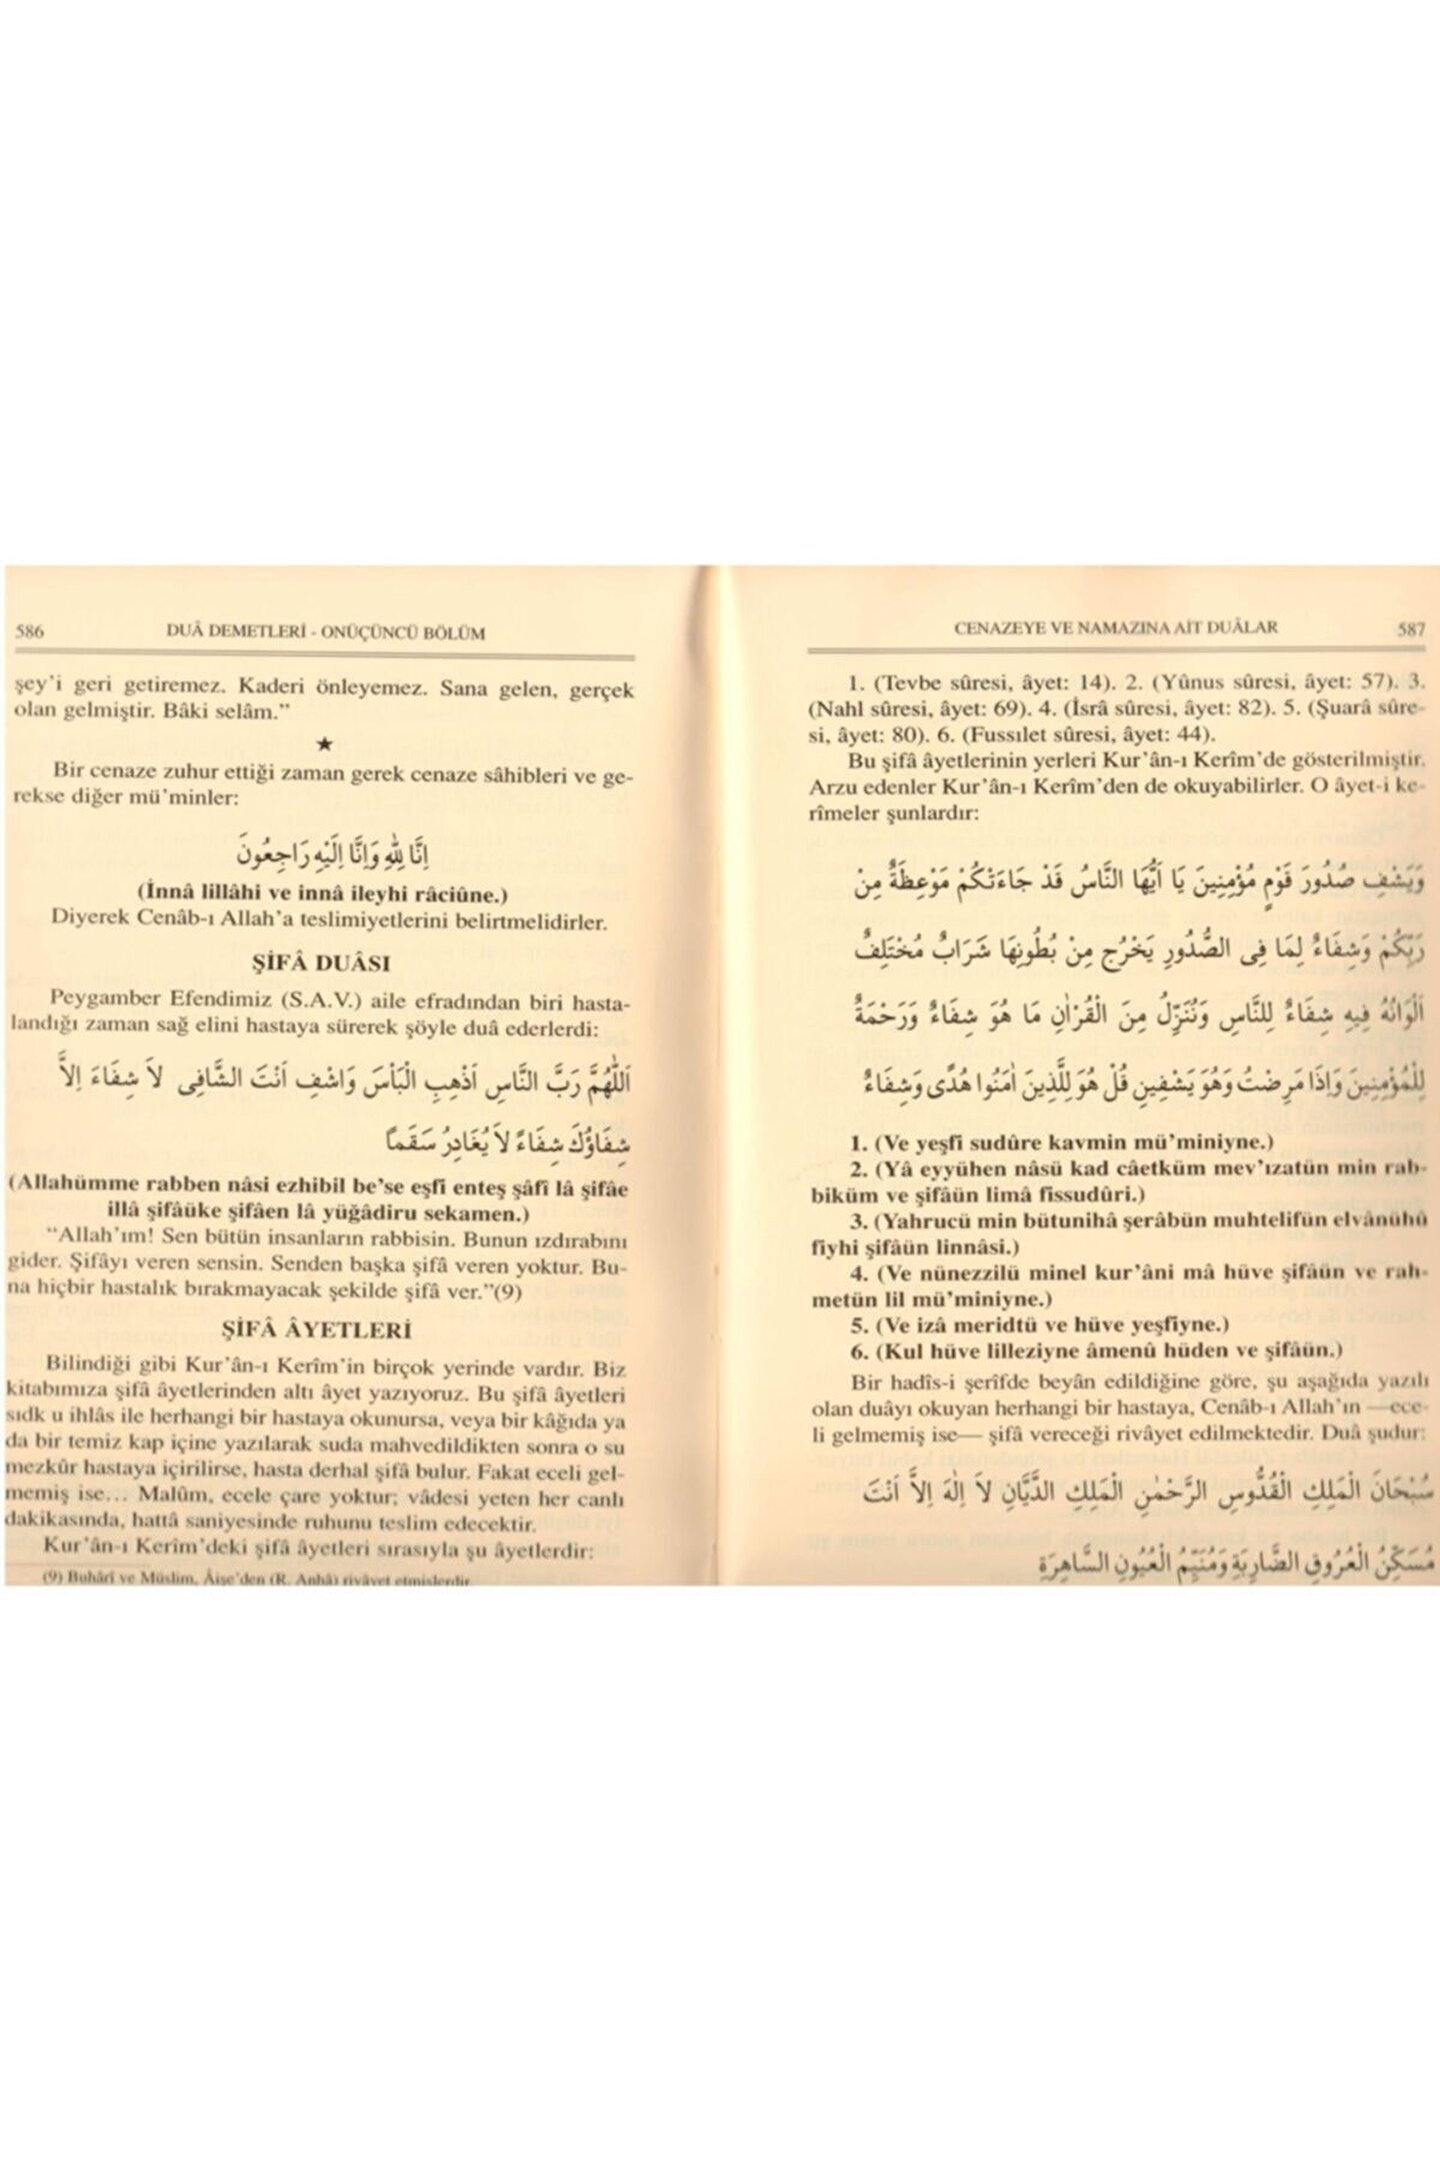 586 DUÂ DEMETLERİ - ONÜÇÜNCÜ BÖLÜM
şey'i geri getiremez. Kaderi önleyemez. Sana gelen, gerçek
olan gelmiştir. Bâki selâm."
★
Bir cenaze zuhur ettiği zaman gerek cenaze sâhibleri ve ge-
rekse diğer mü'minler:
اِنَّا لِلّٰهِ وَاِنَّا اِلَيْهِ رَاجِعُونَ
(İnnâ lillâhi ve innâ ileyhi râciûne.)
Diyerek Cenâb-ı Allah'a teslimiyetlerini belirtmelidirler.
ŞİFÂ DUÂSI
Peygamber Efendimiz (S.A.V.) aile efradından biri hasta-
landığı zaman sağ elini hastaya sürerek şöyle duâ ederlerdi:
اَللّٰهُمَّ رَبَّ النَّاسِ اَذْهِبِ الْبَاْسَ وَاشْفِ اَنْتَ الشَّافِى لَا شِفَاءَ اِلاَّ
شِفَاؤُكَ شِفَاءً لَا يُغَادِرُ سَقَمًا
(Allahümme rabben nâsi ezhibil be'se eşfi enteş şâfî lâ şifâe
illâ şifâüke şifâen lâ yüğâdiru sekamen.)
"Allah'ım! Sen bütün insanların rabbisin. Bunun ızdırabını
gider. Şifâyı veren sensin. Senden başka şifâ veren yoktur. Bu-
na hiçbir hastalık bırakmayacak şekilde şifâ ver."(9)
ŞİFÂ ÂYETLERİ
Bilindiği gibi Kur'ân-ı Kerîm'in birçok yerinde vardır. Biz
kitabımıza şifâ âyetlerinden altı âyet yazıyoruz. Bu şifâ âyetleri
sıdk u ihlâs ile herhangi bir hastaya okunursa, veya bir kâğıda ya
da bir temiz kap içine yazılarak suda mahvedildikten sonra o su
mezkûr hastaya içirilirse, hasta derhal şifâ bulur. Fakat eceli gel-
memiş ise... Malûm, ecele çare yoktur; vâdesi yeten her canlı
dakikasında, hattâ saniyesinde ruhunu teslim edecektir.
Kur'ân-ı Kerîm'deki şifâ âyetleri sırasıyla şu âyetlerdir:
(9) Buhârî ve Müslim, Âişe'den (R. Anhâ) rivâyet etmişlerdir
CENAZEYE VE NAMAZINA AİT DUÂLAR 587
1. (Tevbe sûresi, âyet: 14). 2. (Yûnus sûresi, âyet: 57). 3.
(Nahl sûresi, âyet: 69). 4. (İsrâ sûresi, âyet: 82). 5. (Şuarâ sûre-
si, âyet: 80). 6. (Fussılet sûresi, âyet: 44).
Bu şifâ âyetlerinin yerleri Kur'ân-ı Kerîm'de gösterilmiştir.
Arzu edenler Kur'ân-ı Kerîm'den de okuyabilirler. O âyet-i ke-
rîmeler şunlardır:
وَيَشْفِ صُدُورَ قَوْمٍ مُؤْمِنِينَ يَا اَيُّهَا النَّاسُ قَدْ جَاءَتْكُمْ مَوْعِظَةٌ مِنْ
رَبِّكُمْ وَشِفَاءٌ لِمَا فِى الصُّدُورِ يَخْرُجُ مِنْ بُطُونِهَا شَرَابٌ مُخْتَلِفٌ
اَلْوَانُهُ فِيهِ شِفَاءٌ لِلنَّاسِ وَنُنَزِّلُ مِنَ الْقُرْاٰنِ مَا هُوَ شِفَاءٌ وَرَحْمَةٌ
لِلْمُؤْمِنِينَ وَاِذَا مَرِضْتُ وَهُوَ يَشْفِينِ قُلْ هُوَ لِلَّذِينَ اٰمَنُوا هُدًى وَشِفَاءٌ
1. (Ve yeşfi sudûre kavmin mü'miniyne.)
2. (Yâ eyyühen nâsü kad câetküm mev'ızatün min rab-
biküm ve şifâün limâ fissudûri.)
3. (Yahrucü min bütunihâ şerâbün muhtelifün elvânühû
fiyhi şifâün linnâsi.)
4. (Ve nünezzilü minel kur'âni mâ hüve şifâün ve rah-
metün lil mü'miniyne.)
5. (Ve izâ meridtü ve hüve yeşfiyne.)
6. (Kul hüve lilleziyne âmenû hüden ve şifâün.)
Bir hadîs-i şerîfde beyân edildiğine göre, şu aşağıda yazılı
olan duâyı okuyan herhangi bir hastaya, Cenâb-ı Allah'ın —ece-
li gelmemiş ise— şifâ vereceği rivâyet edilmektedir. Duâ şudur:
سُبْحَانَ الْمَلِكِ الْقُدُّوسِ الرَّحْمٰنِ الْمَلِكِ الدَّيَّانِ لَا اِلٰهَ اِلاَّ اَنْتَ
مُسَكِّنُ الْعُرُوقِ الضَّارِبَةِ وَمُنَيِّمُ الْعُيُونِ السَّاهِرَةِ